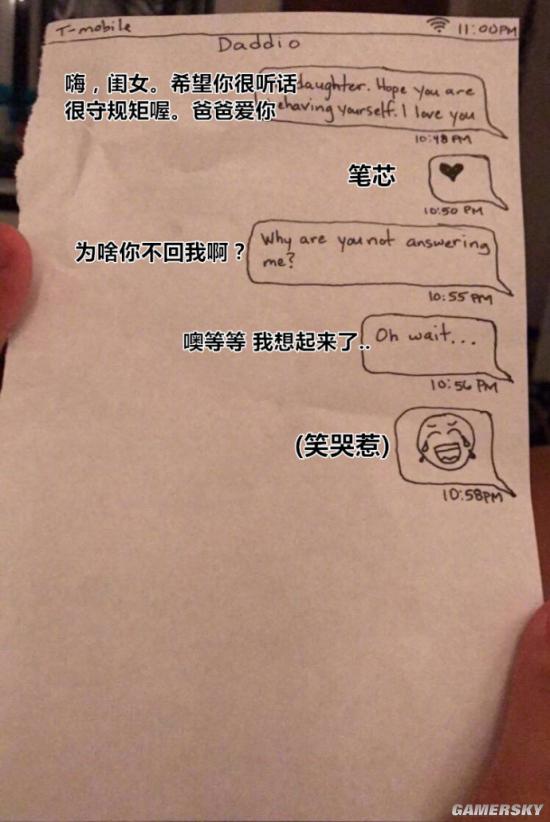 T-mobile 11:00PM
Daddio
嗨，闺女。希望你很听话 daughter. Hope you are
很守规矩喔。爸爸爱你 ehaving yourself. I love you
10:48 PM
笔芯
10:50 PM
为啥你不回我啊？ Why are you not answering
me?
10:55 PM
噢等等 我想起来了.. Oh wait...
10:56 PM
(笑哭惹)
10:58PM
GAMERSKY